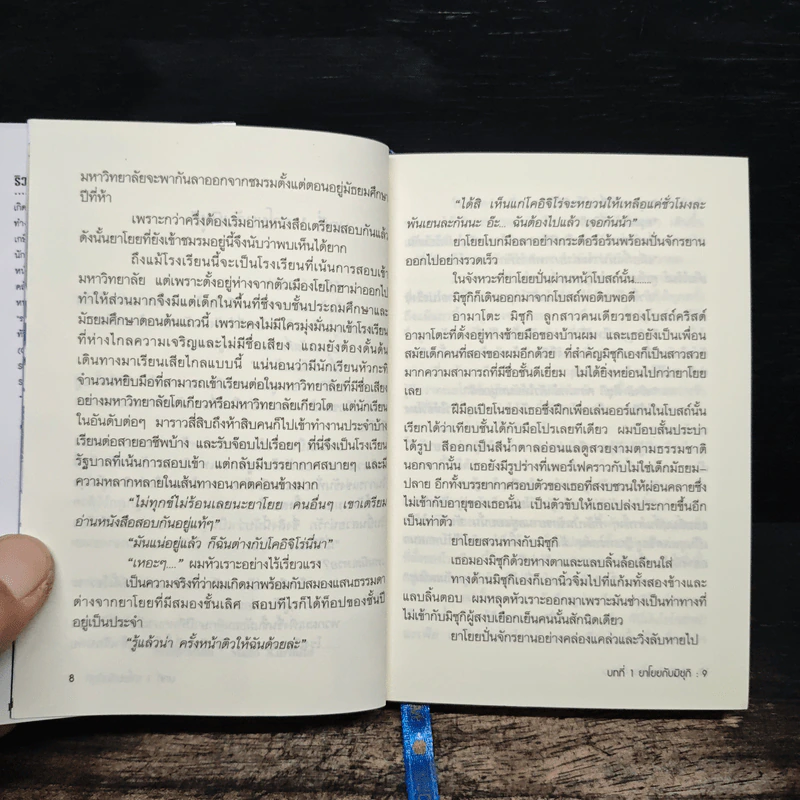 มหาวิทยาลัยจะพากันลาออกจากชมรมตั้งแต่ตอนอยู่มัธยมศึกษา
ปีที่ห้า
เพราะกว่าครึ่งต้องเริ่มอ่านหนังสือเตรียมสอบกันแล้ว
ดังนั้นยาโยยที่ยังเข้าชมรมอยู่นี้จึงนับว่าพบเห็นได้ยาก
ถึงแม้โรงเรียนนี้จะเป็นโรงเรียนที่เน้นการสอบเข้า
มหาวิทยาลัย แต่เพราะตั้งอยู่ห่างจากตัวเมืองโยโกฮาม่าออกไป
ทำให้ส่วนมากจึงมีแต่เด็กในพื้นที่ซึ่งจบชั้นประถมศึกษาและ
มัธยมศึกษาตอนต้นแถวนี้ เพราะคงไม่มีใครมุ่งมั่นมาเข้าโรงเรียน
ที่ห่างไกลความเจริญและไม่มีชื่อเสียง แถมยังต้องดั้นด้น
เดินทางมาเรียนเสียไกลแบบนี้ แน่นอนว่ามีนักเรียนหัวกะทิ
จำนวนหยิบมือที่สามารถเข้าเรียนต่อในมหาวิทยาลัยที่มีชื่อเสียง
อย่างมหาวิทยาลัยโตเกียวหรือมหาวิทยาลัยเกียวโต แต่นักเรียน
ในอันดับต่อๆ มาราวสี่สิบถึงห้าสิบคนก็ไปเข้าทำงานประจำบ้าง
เรียนต่อสายอาชีพบ้าง และรับจ็อบไปเรื่อยๆ ที่นี่จึงเป็นโรงเรียน
รัฐบาลที่เน้นการสอบเข้า แต่กลับมีบรรยากาศสบายๆ และมี
ความหลากหลายในเส้นทางอนาคตค่อนข้างมาก
“ไม่ทุกข์ไม่ร้อนเลยนะยาโยย คนอื่นๆ เขาเตรียม
อ่านหนังสือสอบกันอยู่แท้ๆ”
“มันแน่อยู่แล้ว ก็ฉันต่างกับโคอิจิโร่นี่นา”
“เหอะๆ....” ผมหัวเราะอย่างไร้เรี่ยวแรง
เป็นความจริงที่ว่าผมเกิดมาพร้อมกับสมองแสนธรรมดา
ต่างจากยาโยยที่มีสมองชั้นเลิศ สอบทีไรก็ได้ท็อปของชั้นปี
อยู่เป็นประจำ
“รู้แล้วน่า ครั้งหน้าติวให้ฉันด้วยล่ะ”
8
“ได้สิ เห็นแก่โคอิจิโร่จะหยวนให้เหลือแค่ชั่วโมงละ
พันเยนละกันนะ อ๊ะ... ฉันต้องไปแล้ว เจอกันน้า”
ยาโยยโบกมือลาอย่างกระตือรือร้นพร้อมปั่นจักรยาน
ออกไปอย่างรวดเร็ว
ในจังหวะที่ยาโยยปั่นผ่านหน้าโบสถ์นั้น........
มิซุกิก็เดินออกมาจากโบสถ์พอดิบพอดี
อามาโตะ มิซุกิ ลูกสาวคนเดียวของโบสถ์คริสต์
อามาโตะที่ตั้งอยู่ทางซ้ายมือของบ้านผม และเธอยังเป็นเพื่อน
สมัยเด็กคนที่สองของผมอีกด้วย ที่สำคัญมิซุกิเองก็เป็นสาวสวย
มากความสามารถที่มีชื่อขั้นดีเยี่ยม ไม่ได้ยิ่งหย่อนไปกว่ายาโยย
เลย
ฝีมือเปียโนของเธอซึ่งฝึกเพื่อเล่นออร์แกนในโบสถ์นั้น
เรียกได้ว่าเทียบชั้นได้กับมือโปรเลยทีเดียว ผมบ๊อบสั้นประบ่า
ได้รูป สีออกเป็นสีน้ำตาลอ่อนแลดูสวยงามตามธรรมชาติ
นอกจากนั้น เธอยังมีรูปร่างที่เพอร์เฟคราวกับไม่ใช่เด็กมัธยม–
ปลาย อีกทั้งบรรยากาศรอบตัวของเธอที่สงบชวนให้ผ่อนคลายซึ่ง
ไม่เข้ากับอายุของเธอนั้น เป็นตัวขับให้เธอเปล่งประกายขึ้นอีก
เป็นเท่าตัว
ยาโยยสวนทางกับมิซุกิ
เธอมองมิซุกิด้วยหางตาและแลบลิ้นล้อเลียนใส่
ทางด้านมิซุกิเองก็เอานิ้วจิ้มไปที่แก้มทั้งสองข้างและ
แลบลิ้นตอบ ผมหลุดหัวเราะออกมาเพราะมันช่างเป็นท่าทางที่
ไม่เข้ากับมิซุกิผู้สงบเยือกเย็นคนนั้นสักนิดเดียว
ยาโยยปั่นจักรยานอย่างคล่องแคล่วและวิ่งลับหายไป
บทที่ 1 ยาโยยกับมิซุกิ : 9